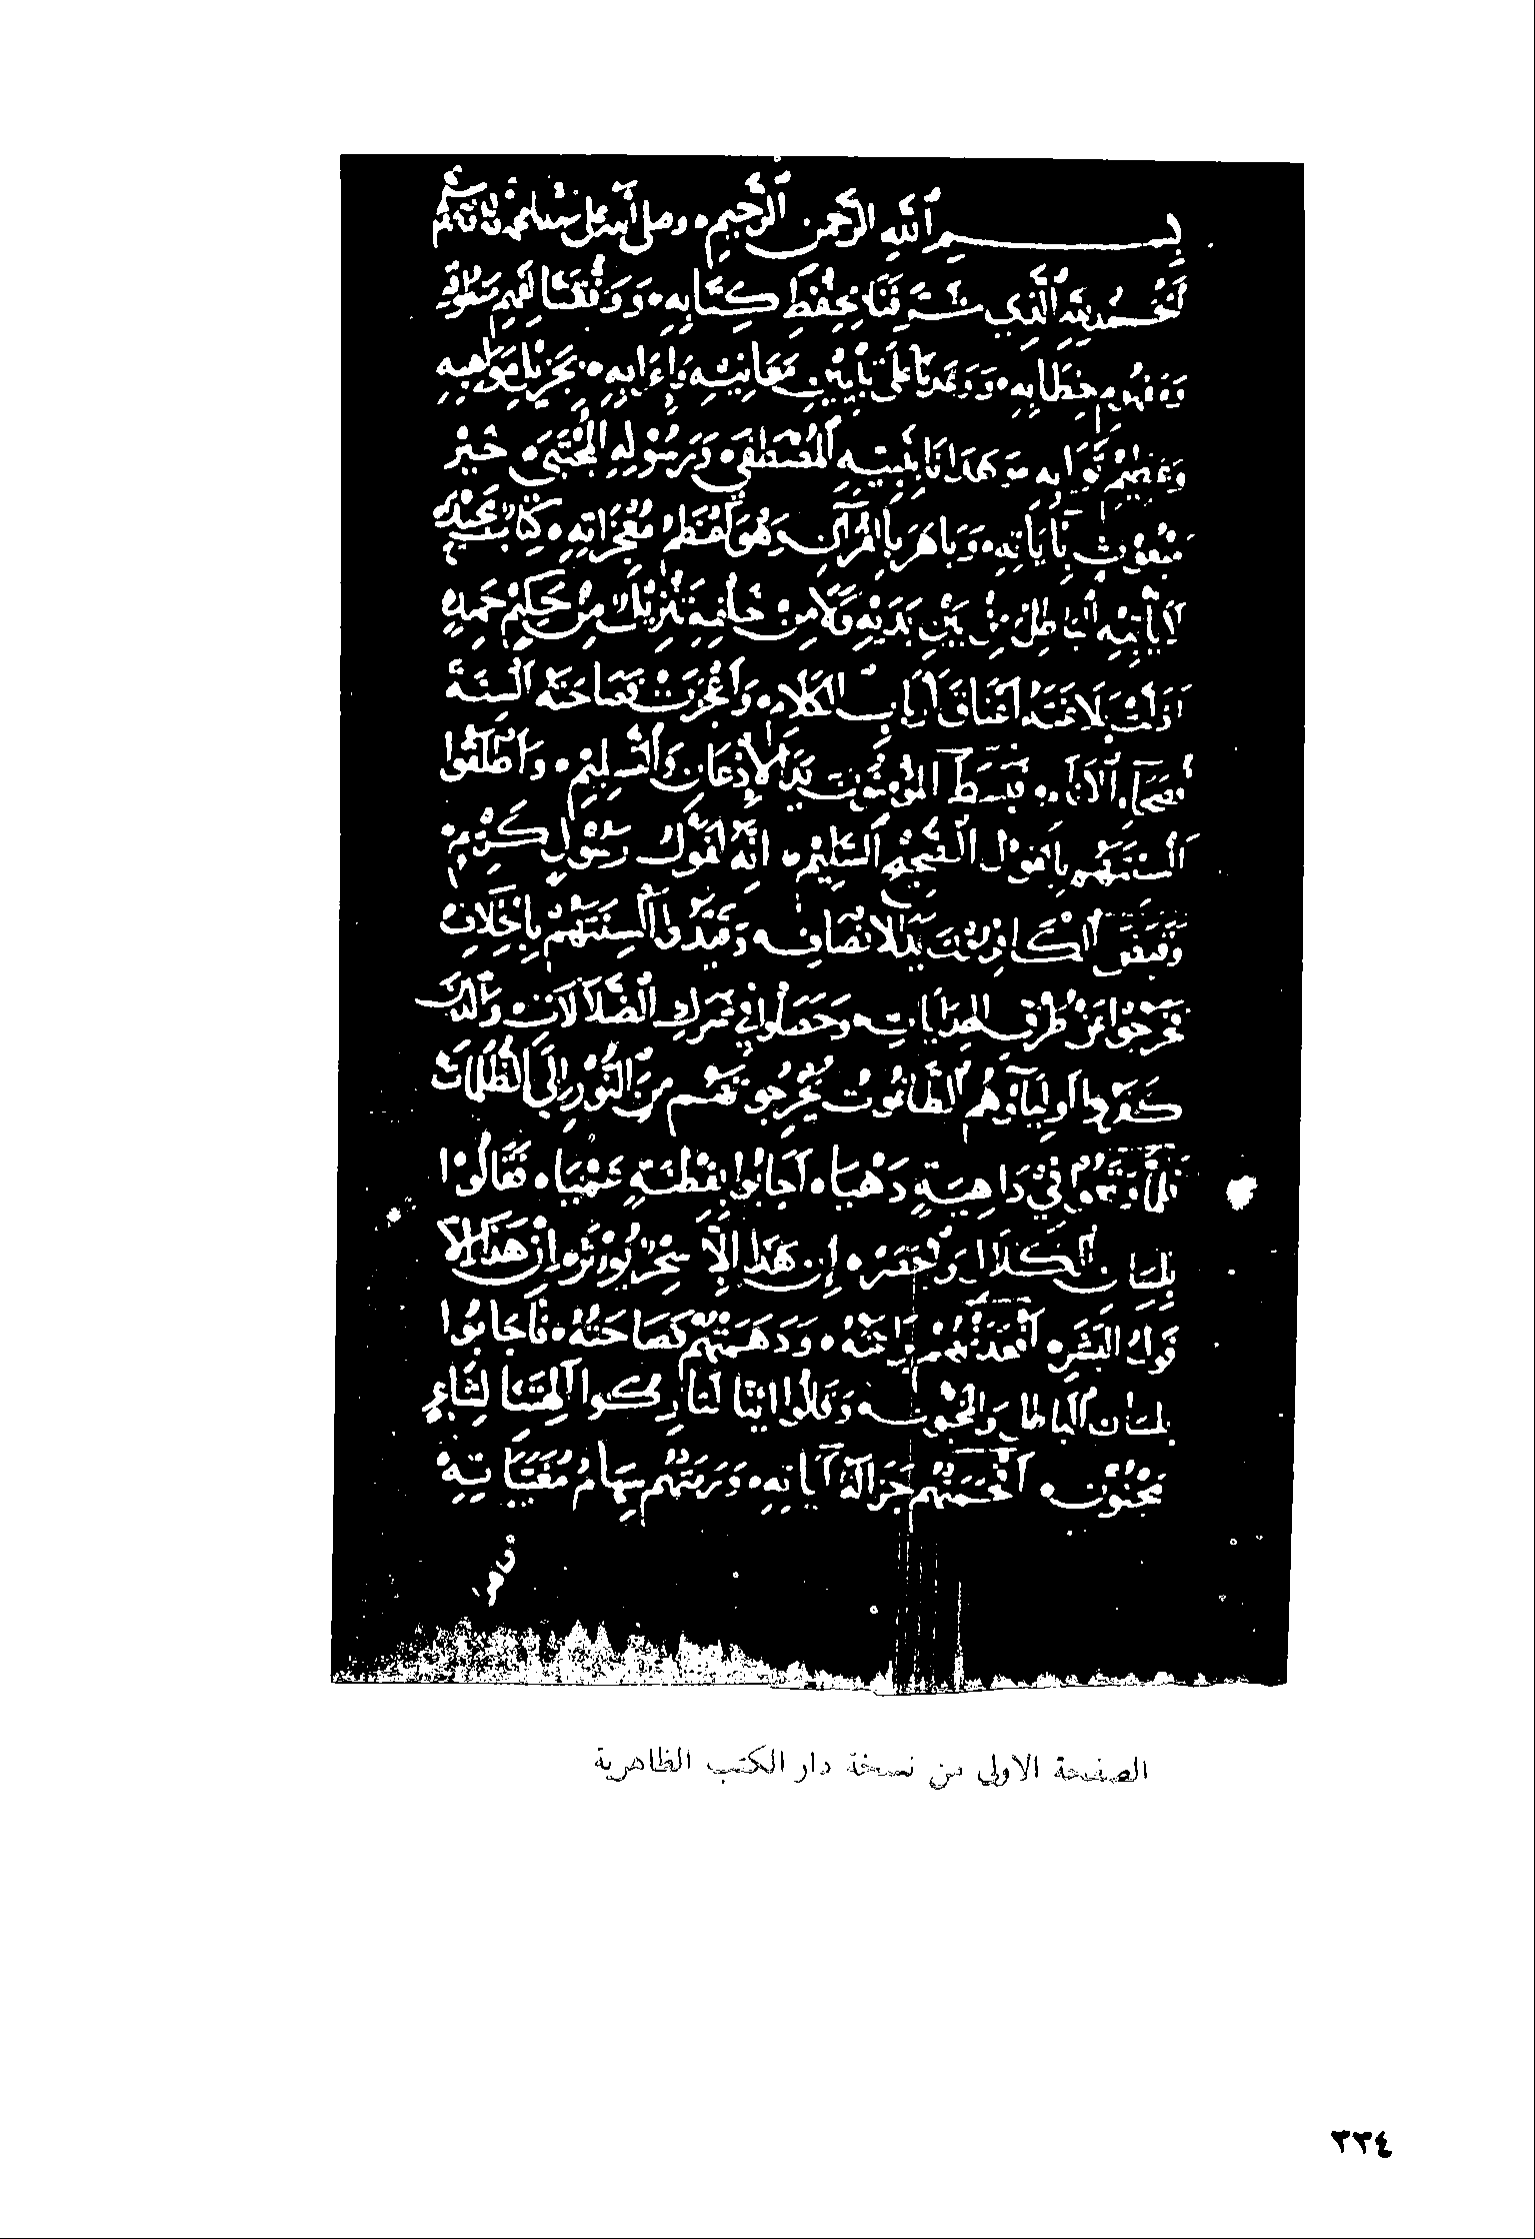 بسم الله الرحمن الرحيم وصلى الله على
الحمد لله الذي شرفنا بحفظ كتابه ووفقنا لفهم منطوقه
ومفهوم خطابه ووعدنا على تبيين معانيه وإعرابه بجزيل مواهبه
وعظيم ثوابه وهدانا بنبيه المصطفى ورسوله المجتبى خير
مبعوث بآياته وباهر بالقرآن وهو أعظم معجزاته كتاب مجيد
لا يأتيه الباطل من بين يديه ولا من خلفه تنزيل من حكيم حميد
بلاغته أعناق أرباب الكلام وأعجزت فصاحته ألسنة
فصحاء الأنام فبسط المؤمنون يد الإذعان والتسليم وأطلقوا
ألسنتهم بالقول الصحيح السليم إنه لقول رسول كريم
وقبض الكافرون يد الإنصاف وقيدوا ألسنتهم بالخلاف
فخرجوا عن طرق الهدايات وحصلوا في شرك الضلالات والذين
كفروا أولياؤهم الطاغوت يخرجونهم من النور إلى الظلمات
فلما وقعوا في داهية دهياء أجابوا بفطنة عمياء فقالوا
بلسان إن هذا إلا سحر يؤثر إن هذا إلا
قول البشر أقعدتهم بلاغته ودهمتهم فصاحته فأجابوا
بلسان الباطل والمجون وقالوا ائنا لتاركوا آلهتنا لشاعر
مجنون أفحمتهم جزالة آياته ورمتهم سهام مغيباته
الصفحة الاولى من نسخة دار الكتب الظاهرية
٣٣٤